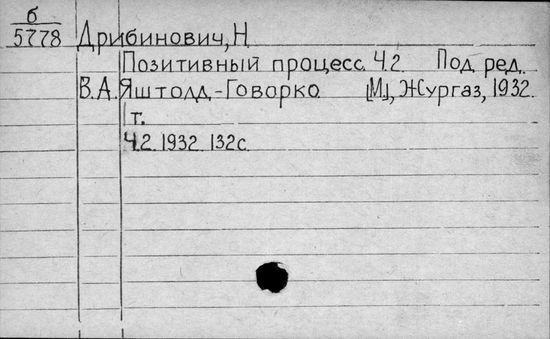 б
5778
Дрибинович, Н.
Позитивный процесс. Ч.2. Под ред.
В.А. Яштолд-Говорко. [М], Жургаз, 1932.
т.
Ч.2. 1932. 132с.